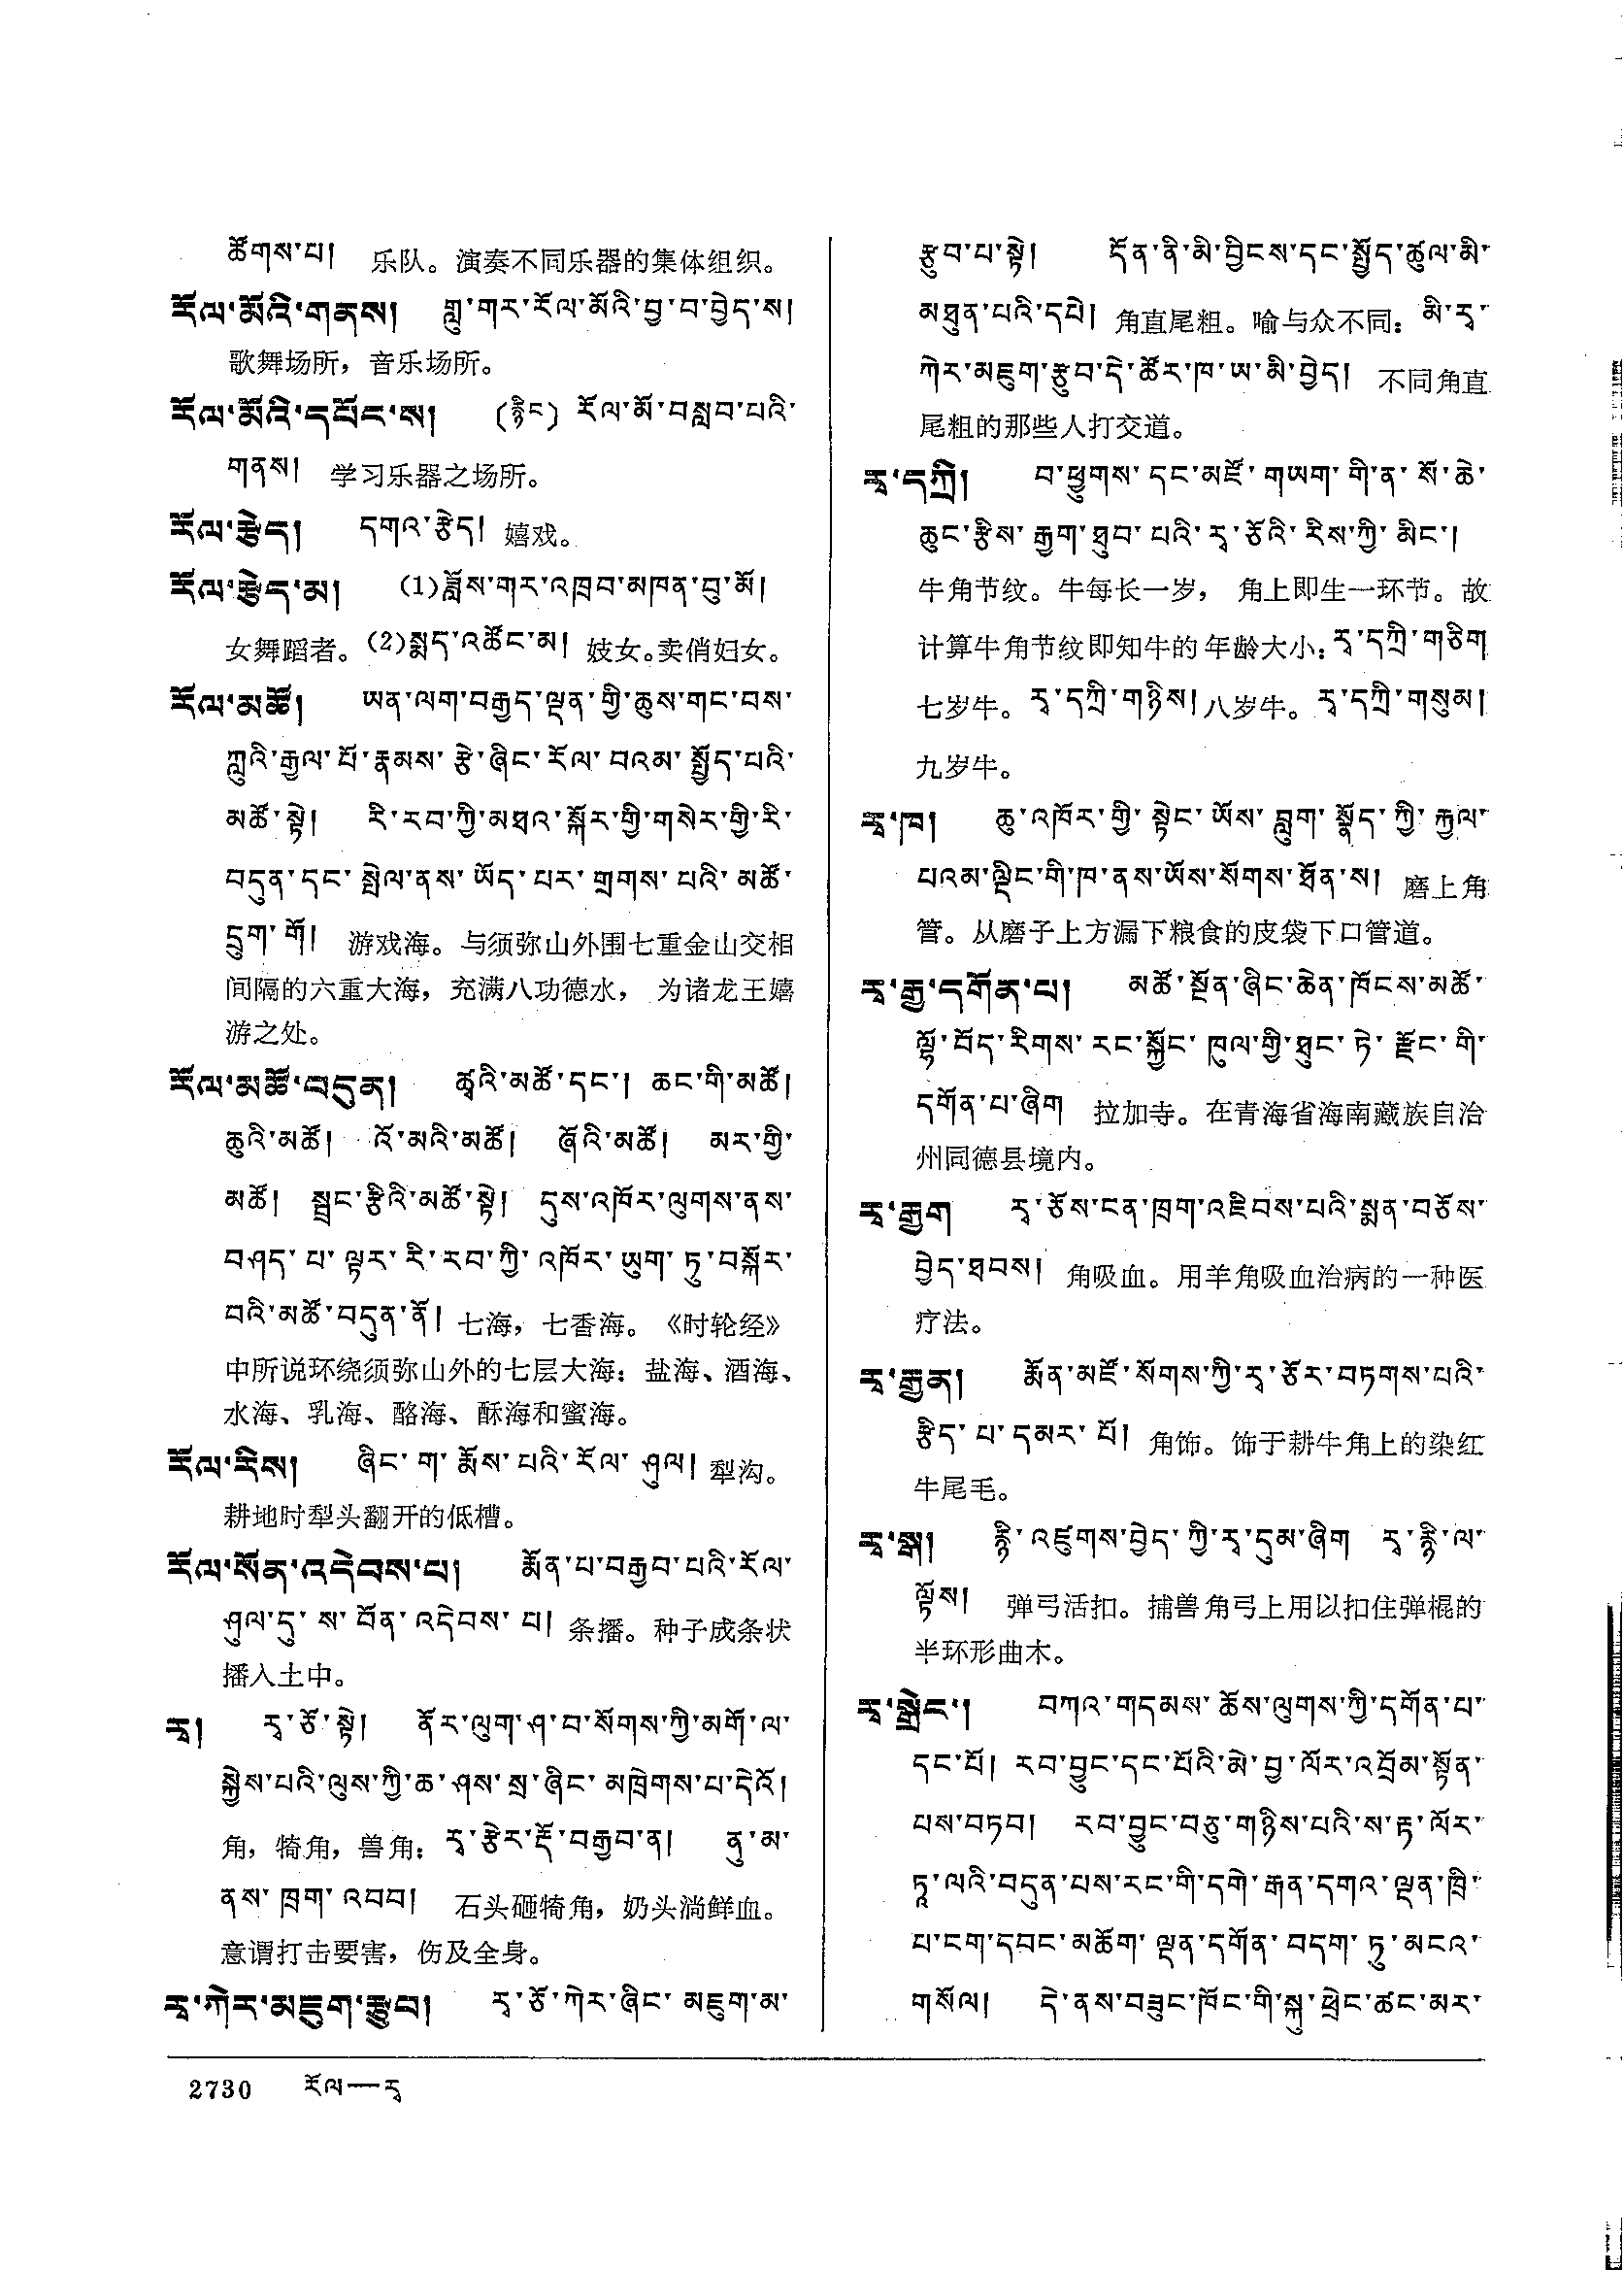 ཚོགས་པ། 乐队。演奏不同乐器的集体组织。
རོལ་མོའི་གནས། གླུ་གར་རོལ་མོའི་བྱ་བ་བྱེད་ས།
歌舞场所，音乐场所。
རོལ་མོའི་དཔོང་ས། (རྙིང) རོལ་མོ་བསླབ་པའི་
གནས། 学习乐器之场所。
རོལ་རྩེད། དགའ་རྩེད། 嬉戏。
རོལ་རྩེད་མ། (1)ཟློས་གར་འཁྲབ་མཁན་བུ་མོ།
女舞蹈者。(2)སྨད་འཚོང་མ། 妓女。卖俏妇女。
རོལ་མཚོ། ཡན་ལག་བརྒྱད་ལྡན་གྱི་ཆུས་གང་བས་
ཀླུའི་རྒྱལ་པོ་རྣམས་རྩེ་ཞིང་རོལ་བའམ་སྤྱོད་པའི་
མཚོ་སྟེ། རི་རབ་ཀྱི་མཐའ་སྐོར་གྱི་གསེར་གྱི་རི་
བདུན་དང་སྤེལ་ནས་ཡོད་པར་གྲགས་པའི་མཚོ་
དྲུག་གོ། 游戏海。与须弥山外围七重金山交相
间隔的六重大海，充满八功德水， 为诸龙王嬉
游之处。
རོལ་མཚོ་བདུན། ཚྭའི་མཚོ་དང་། ཆང་གི་མཚོ།
ཆུའི་མཚོ། འོ་མའི་མཚོ། ཞོའི་མཚོ། མར་གྱི་
མཚོ། སྦྲང་རྩིའི་མཚོ་སྟེ། དུས་འཁོར་ལུགས་ནས་
བཤད་པ་ལྟར་རི་རབ་ཀྱི་འཁོར་ཡུག་ཏུ་བསྐོར་
བའི་མཚོ་བདུན་ནོ། 七海，七香海。《时轮经》
中所说环绕须弥山外的七层大海：盐海、酒海、
水海、乳海、酪海、酥海和蜜海。
རོལ་རིས། ཞིང་ག་རྨོས་པའི་རོལ་ཤུལ། 犁沟。
耕地时犁头翻开的低槽。
རོལ་སོན་འདེབས་པ། རྨོན་པ་བརྒྱབ་པའི་རོལ་
ཤུལ་དུ་ས་བོན་འདེབས་པ། 条播。种子成条状
播入土中。
རྭ། རྭ་ཅོ་སྟེ། ནོར་ལུག་ཤ་བ་སོགས་ཀྱི་མགོ་ལ་
སྐྱེས་པའི་ལུས་ཀྱི་ཆ་ཤས་སྲ་ཞིང་མཁྲེགས་པ་དེའོ།
角，犄角，兽角：རྭ་རྩེར་རྡོ་བརྒྱབ་ན། ནུ་མ་
ནས་ཁྲག་འབབ། 石头砸犄角，奶头淌鲜血。
意谓打击要害，伤及全身。
རྭ་ཀེར་མཇུག་རྩུབ། རྭ་ཅོ་ཀེར་ཞིང་མཇུག་མ་
རྩུབ་པ་སྟེ། དོན་ནི་མི་བྱིངས་དང་སྤྱོད་ཚུལ་མི་
མཐུན་པའི་དཔེ། 角直尾粗。喻与众不同：མི་རྭ་
ཀེར་མཇུག་རྩུབ་དེ་ཚོར་ཁ་ཡ་མི་བྱེད། 不同角直
尾粗的那些人打交道。
རྭ་དཀྲི། བ་ཕྱུགས་དང་མཛོ་གཡག་གི་ན་སོ་ཆེ་
ཆུང་རྩིས་རྒྱག་ཐུབ་པའི་རྭ་ཅོའི་རིས་ཀྱི་མིང་།
牛角节纹。牛每长一岁， 角上即生一环节。故
计算牛角节纹即知牛的年龄大小：རྭ་དཀྲི་གཅིག
七岁牛。རྭ་དཀྲི་གཉིས། 八岁牛。རྭ་དཀྲི་གསུམ།
九岁牛。
རྭ་ཁ། ཆུ་འཁོར་གྱི་སྟེང་ཡོས་བླུག་སྣོད་ཀྱི་རྒྱལ་
པའམ་ལྡིང་གི་ཁ་ནས་ཡོས་སོགས་ཐོན་ས། 磨上角
管。从磨子上方漏下粮食的皮袋下口管道。
རྭ་རྒྱ་དགོན་པ། མཚོ་སྔོན་ཞིང་ཆེན་ཁོངས་མཚོ་
ལྷོ་བོད་རིགས་རང་སྐྱོང་ཁུལ་གྱི་ཐུང་ཏེ་རྫོང་གི་
དགོན་པ་ཞིག 拉加寺。在青海省海南藏族自治
州同德县境内。
རྭ་རྒྱག རྭ་ཅོས་ངན་ཁྲག་འཇིབས་པའི་སྨན་བཅོས་
བྱེད་ཐབས། 角吸血。用羊角吸血治病的一种医
疗法。
རྭ་རྒྱན། རྨོན་མཛོ་སོགས་ཀྱི་རྭ་ཅོར་བཏགས་པའི་
རྩིད་པ་དམར་པོ། 角饰。饰于耕牛角上的染红
牛尾毛。
རྭ་སྒ། རྙི་འཛུགས་བྱེད་ཀྱི་རྭ་དུམ་ཞིག རྭ་རྙི་ལ་
ལྟོས། 弹弓活扣。捕兽角弓上用以扣住弹棍的
半环形曲木。
རྭ་སྒྲེང་། བཀའ་གདམས་ཆོས་ལུགས་ཀྱི་དགོན་པ་
དང་པོ། རབ་བྱུང་དང་པོའི་མེ་བྱ་ལོར་འབྲོམ་སྟོན་
པས་བཏབ། རབ་བྱུང་བཅུ་གཉིས་པའི་ས་རྟ་ལོར་
ཏཱ་ལའི་བདུན་པས་རང་གི་དགེ་རྒན་དགའ་ལྡན་ཁྲི་
པ་ངག་དབང་མཆོག་ལྡན་དགོན་བདག་ཏུ་མངའ་
གསོལ། དེ་ནས་བཟུང་ཁོང་གི་སྐུ་ཕྲེང་ཚང་མར་
2730 རོལ—རྭ